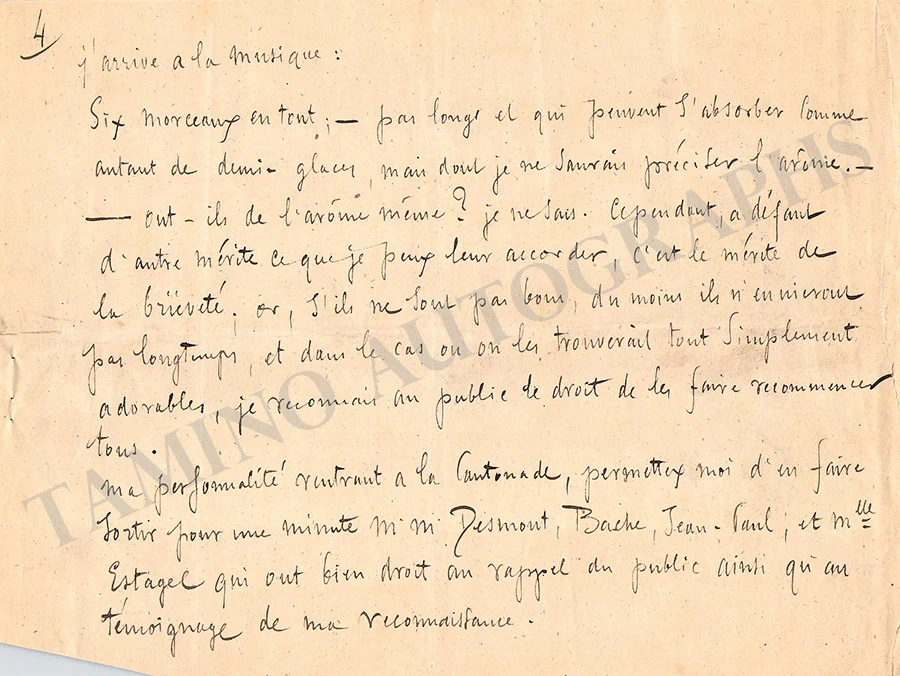 4
j'arrive a la musique :
Six morceaux en tout ; — pas longs et qui peuvent s'absorber comme
autant de demi-glaces, mais dont je ne saurais préciser l'arôme. —
— ont-ils de l'arôme même ? je ne sais. Cependant, a défaut
d'autre mérite ce que je peux leur accorder, c'est le mérite de
la brièveté ; or, s'ils ne sont pas bons, du moins ils n'ennuieront
pas longtemps, et dans le cas ou on les trouverait tout simplement
adorables, je reconnais au public le droit de les faire recommencer
tous.
ma personnalité rentrant a la Cantonade, permettez moi d'en faire
sortir pour une minute M.M. Desmont, Bache, Jean-Paul, et Mlle
Estagel qui ont bien droit au rappel du public ainsi qu'au
témoignage de ma reconnaissance.
TAMINO AUTOGRAPHS